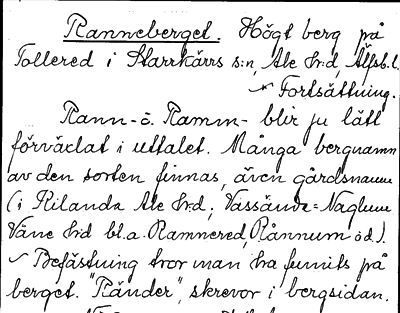 Ranneberget. Högt berg på
Tollered i Starrkärrs s:n, Ale h:d, Älfsb. l.
Fortsättning.
Rann- o. Ramm- blir ju lätt
förväxlat i uttalet. Många bergnamn
av den sorten finnas, även gårdsnamn
(i Kilanda Ale h:d; Vassända-Naglum
Väne h:d bl.a. Ramnered, Rånnum o d.).
Befästning tror man ha funnits på
berget. "Ränder", skrevor i bergsidan.